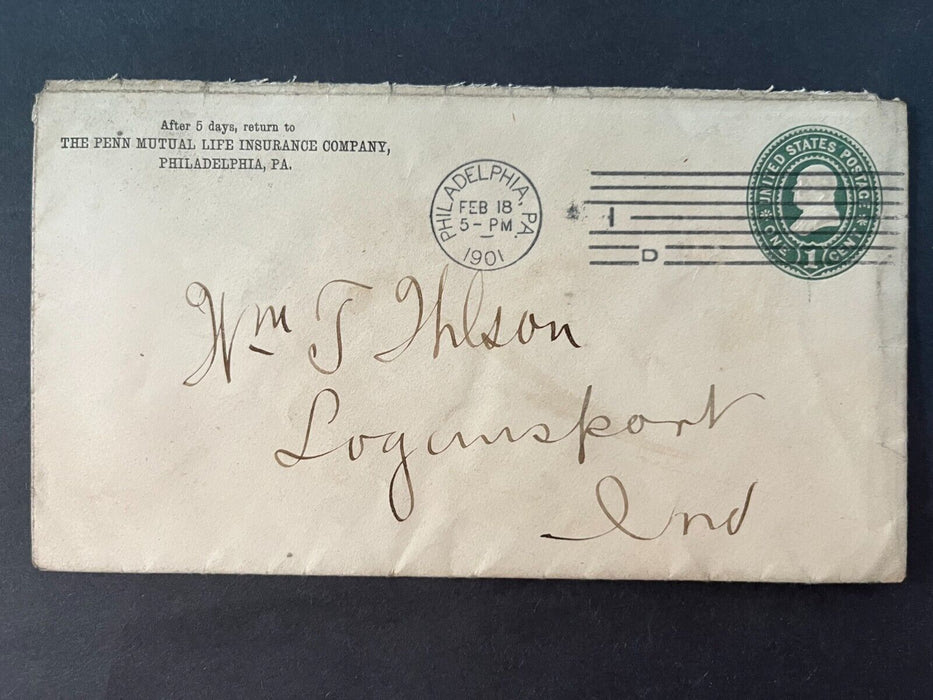 After 5 days, return to
THE PENN MUTUAL LIFE INSURANCE COMPANY,
PHILADELPHIA, PA.
PHILADELPHIA, PA.
FEB 18
5-PM
1901
1
D
UNITED STATES POSTAGE
ONE 1 CENT
Wm T
Logansport
Ind